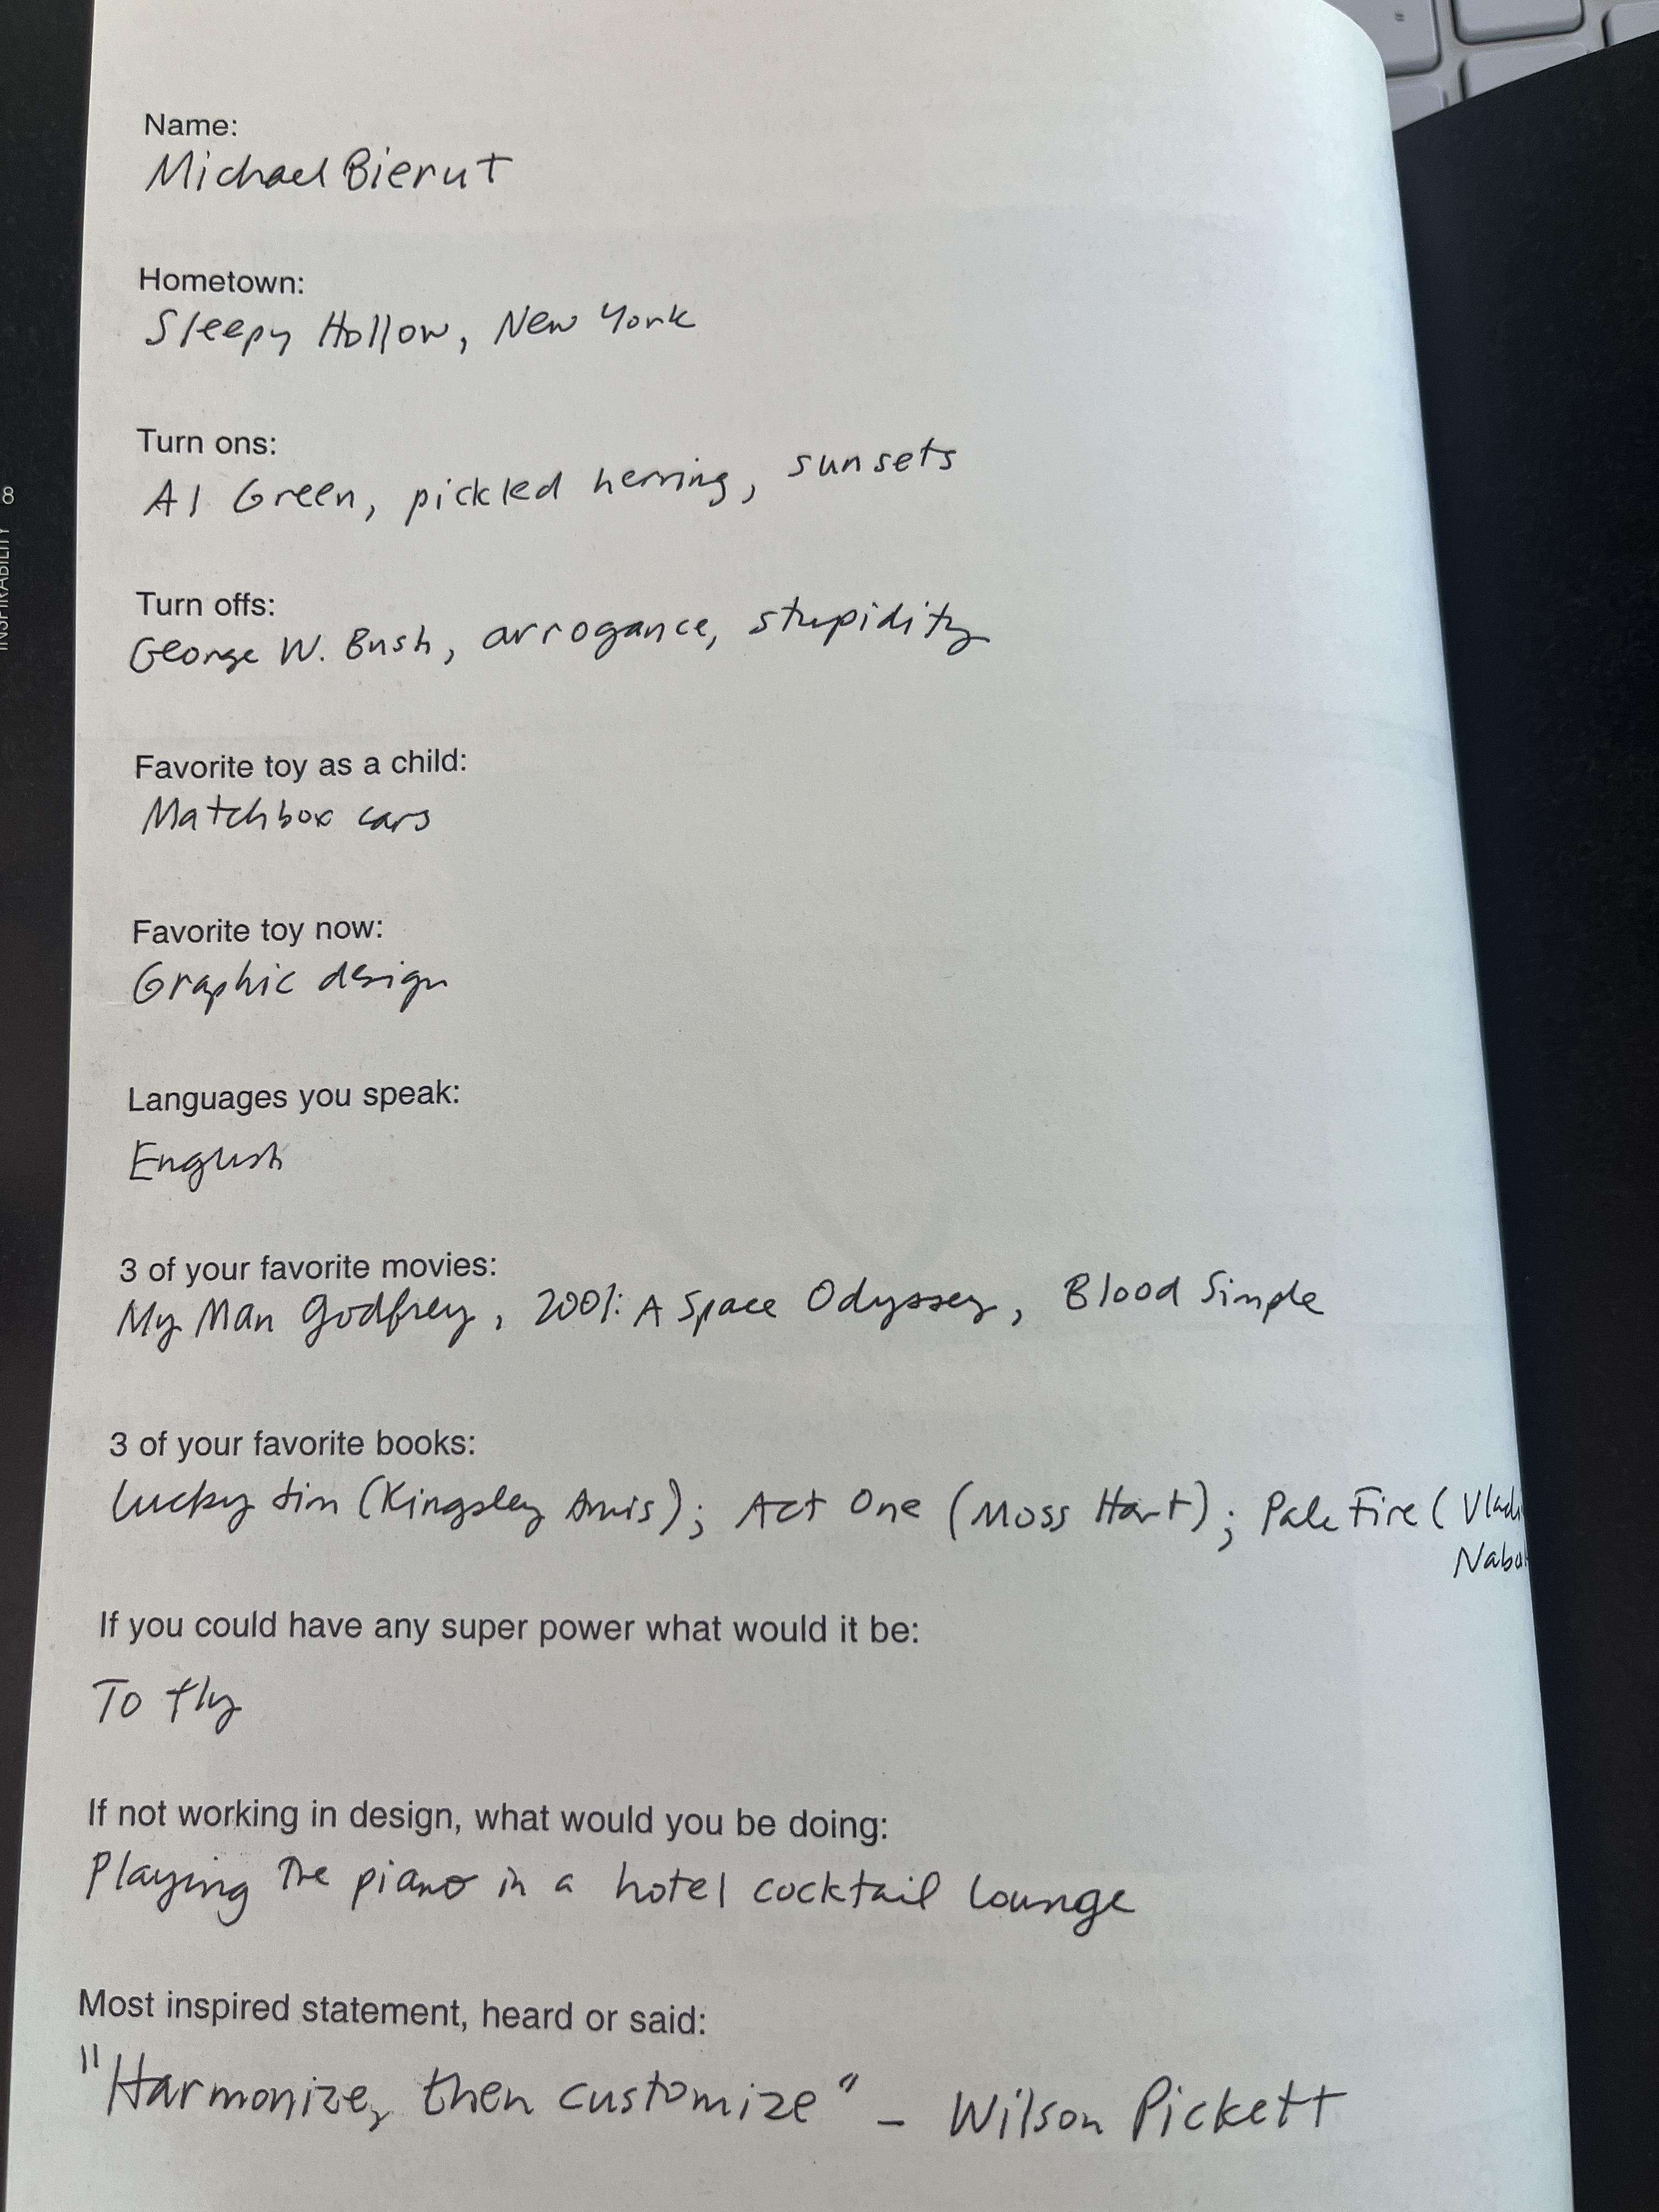 Name:
Michael Bierut
Hometown:
Sleepy Hollow, New York
Turn ons:
Al Green, pickled herring, sunsets
Turn offs:
George W. Bush, arrogance, stupidity
Favorite toy as a child:
Matchbox cars
Favorite toy now:
Graphic design
Languages you speak:
English
3 of your favorite movies:
My Man Godfrey, 2001: A Space Odyssey, Blood Simple
3 of your favorite books:
Lucky Jim (Kingsley Amis); Act One (Moss Hart); Pale Fire (
If you could have any super power what would it be:
To fly
If not working in design, what would you be doing:
Playing the piano in a hotel cocktail lounge
Most inspired statement, heard or said:
"Harmonize, then customize" – Wilson Pickett
8
INSPIRABILITY